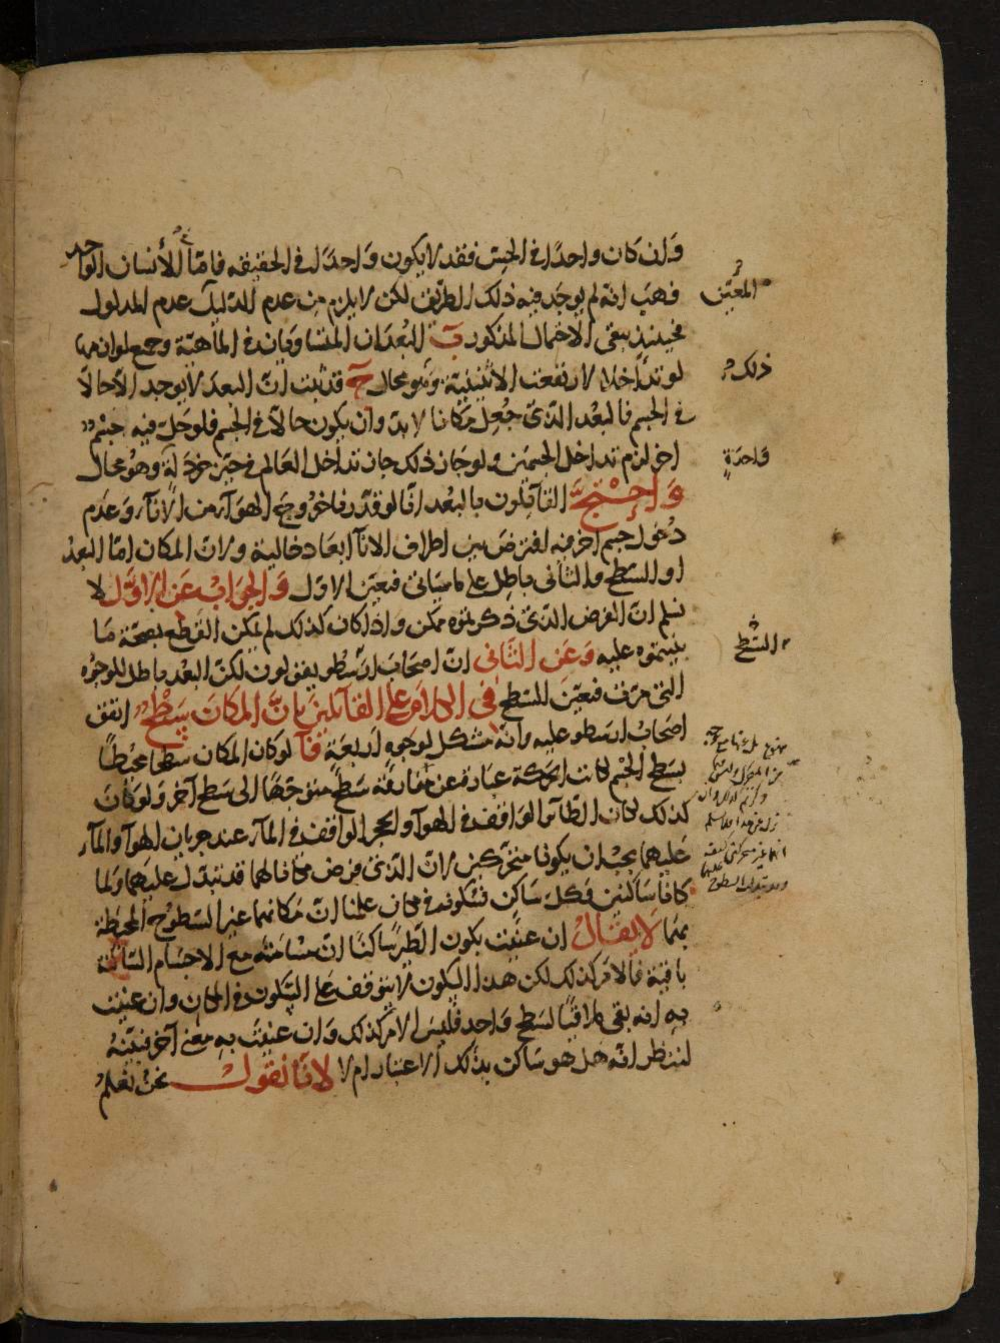 وان كان واحدًا في الحس فقد لا يكون واحدًا في الحقيقه فاما الأنسان الواحد
المعيّن
فهب انه لم يوجد فيه ذلك الطريق لكن لا يلزم من عدم الدليل عدم المدلول
فحينئذ يبقى الاحتمال المذكور بَ البُعدان المتساويان في الماهيّة وجميع لوازمها
ذلك
لو تداخلا لارتفعت الاثنينيّة وهو محال جَ قد ثبت انّ البعد لا يوجد الا حالاً
في الجسم فالبعد الذي جُعِل مكانا لا بد وان يكون حالاً في الجسم فلو حلّ فيه جسم
واحدةٍ
اخر لزم تداخل الجسمين ولو جاز ذلك جاز تداخل العالم في حيّز خردلة وهو محال
وَاحْتجَّ القائلون بالبعد انّا لو قدّرنا خروج الهوآء من الانآء وعدم
دخول جسم آخر فيه لفترض بين اطراف الانآء ابعاد خالية ولان المكان امّا البعد
او السّطح والثاني باطل على ما سيأتي فيعيّن الاول وَالجَوَابُ عَن الاوَّل لا
نسلم انّ الفرض الذي ذكرتموه ممكن واذا كان كذلك لم يمكن القطع بصحّة ما
السّطح
بنيتموه عليه وَعَن الثَّانى انّ اصحاب ارسطو يقولون لكنّ البعد باطل للوجوه
التي مرّت فيعيّن السّطح في الكلام على القآئلين بانّ المكان سَطْح اتفق
اصحاب ارسطو عليه وانّه مشكل لوجوه اربعة آ لو كان المكان سطحا محيطًا
بسطح الجسم لكانت الحركة عبارة عن مفارقة سطح متوجّهًا الى سطح آخر ولو كان
كذلك لكان الطّآئر الواقف في الهوآء والحجر الواقف في المآء عند جريان الهوآء والمآء
عليهما يجب ان يكونا متحرّكين لانّ الذي فرض مكانا لهما قد تبدّل عليهما ولما
كانا ساكنين فكل ساكن فسكونه في مكان علمنا انّ مكانهما غير السّطوح المحيطة
بهما لَا يقَال ان عنيت بكون الطّير ساكنًا انّ مسامتته مع الاجسام الثابتة
باقية فالامر كذلك لكن هذا السكون لا يتوقف على السّكون في المكان وان عنيت
به انه بقي ملاقيًا لسطح واحد فليس الامر كذلك وان عنيت به معنى آخر فبيّنه
لننظر انّه هل هو ساكن بذلك الاعتبار ام لا لانّا نَقول نحن نعلم